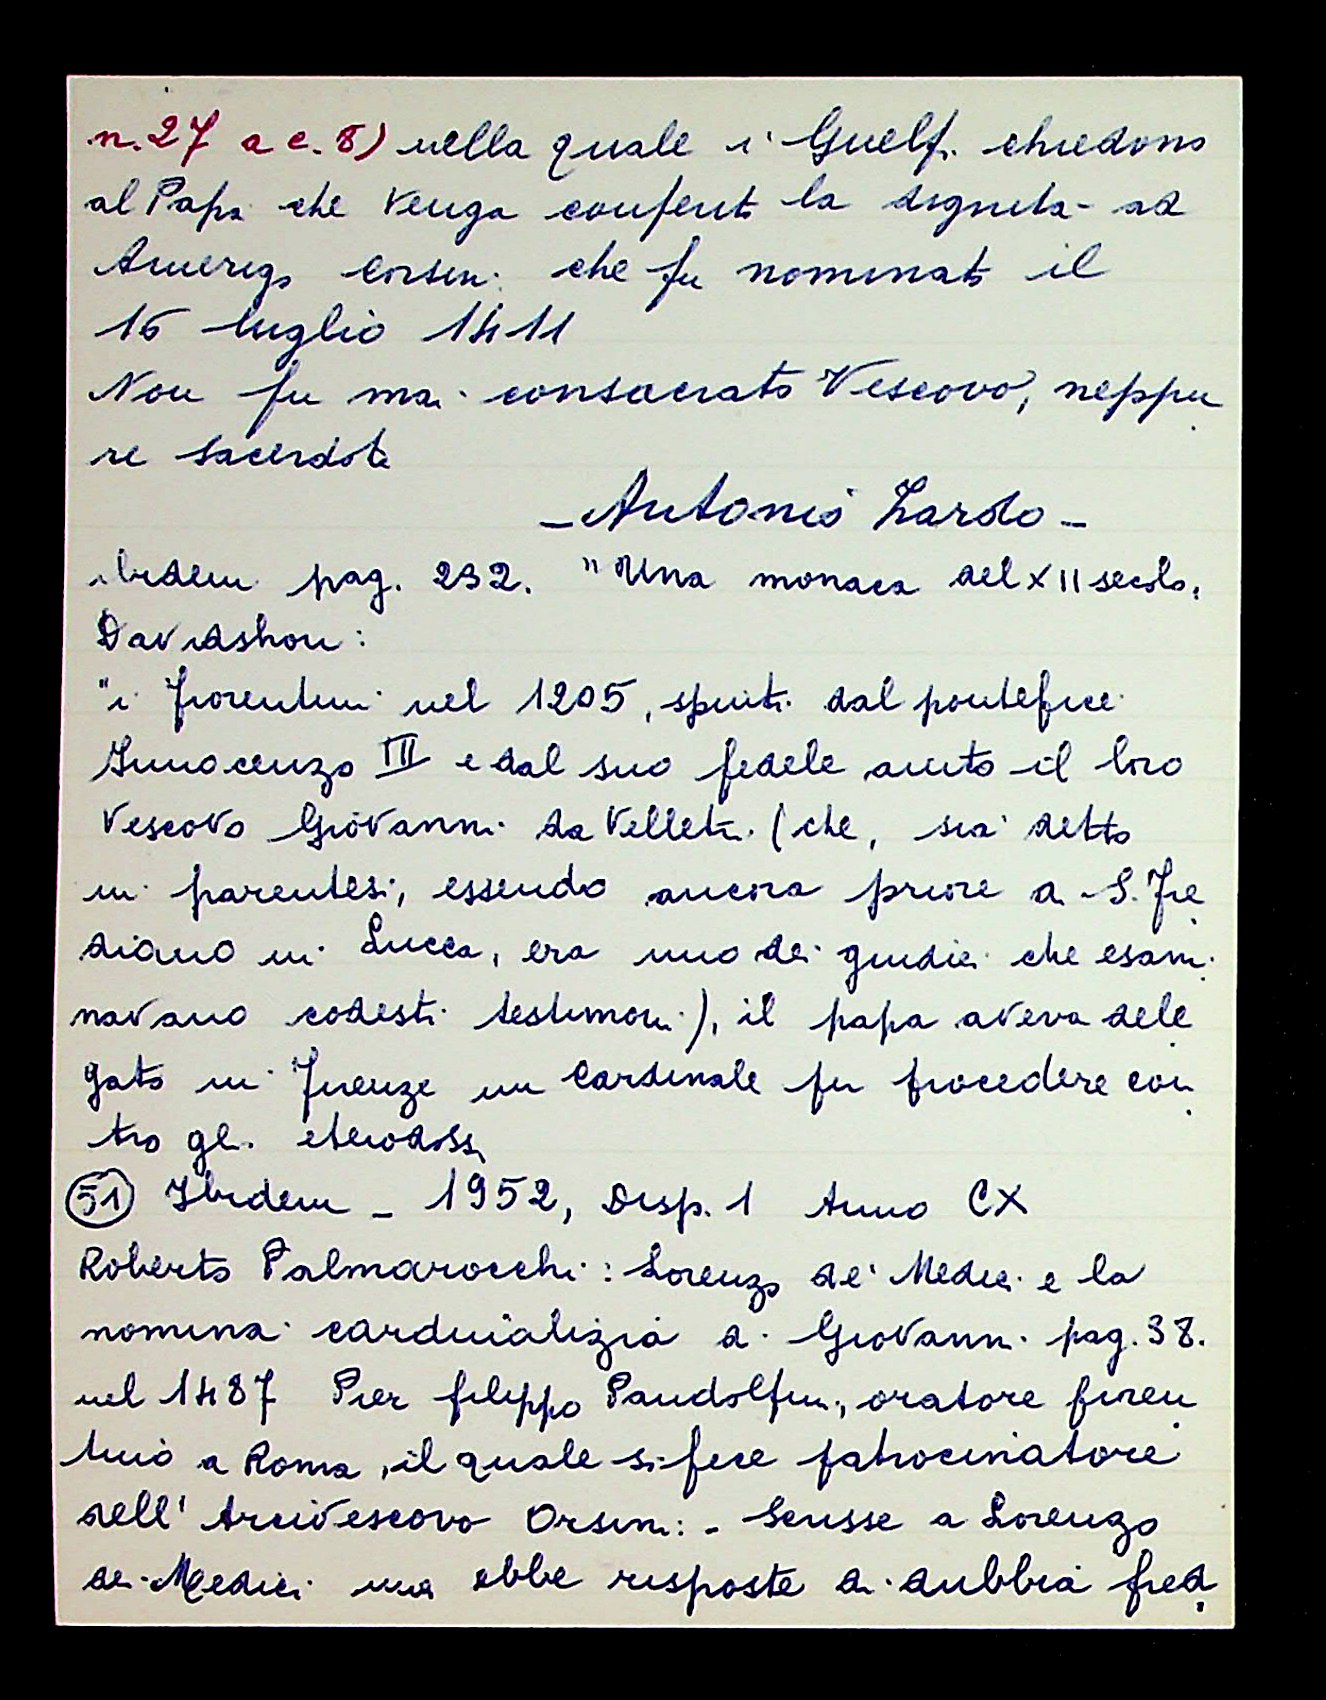 n. 27 a c. 8) nella quale i Guelfi chiedono
al Papa che venga conferita la dignità ad
Amerigo Corsini che fu nominato il
16 luglio 1411
Non fu mai consacrato Vescovo, neppu
re sacerdote
- Antonio Lardo -
ibidem pag. 232. "Una monaca del XII secolo.
Davidshon:
"i fiorentini nel 1205, spinti dal pontefice
Innocenzo III e dal suo fedele aiuto il loro
Vescovo Giovanni da Velletri (che, sia detto
in parentesi, essendo ancora priore a S. Fre
diano in Lucca, era uno dei giudici che esami
navano codesti testimoni), il papa aveva dele
gato in Firenze un Cardinale per procedere con
tro gli eterodossi
51 Ibidem - 1952, Disp. 1 Anno CX
Roberto Palmarocchi: Lorenzo de' Medici e la
nomina cardinalizia di Giovanni pag. 38.
nel 1487 Pier filippo Pandolfini, oratore fioren
tino a Roma, il quale si fece patrocinatore
dell' Arcivescovo Orsini: - Scrisse a Lorenzo
dei Medici ma ebbe risposte di dubbia fred